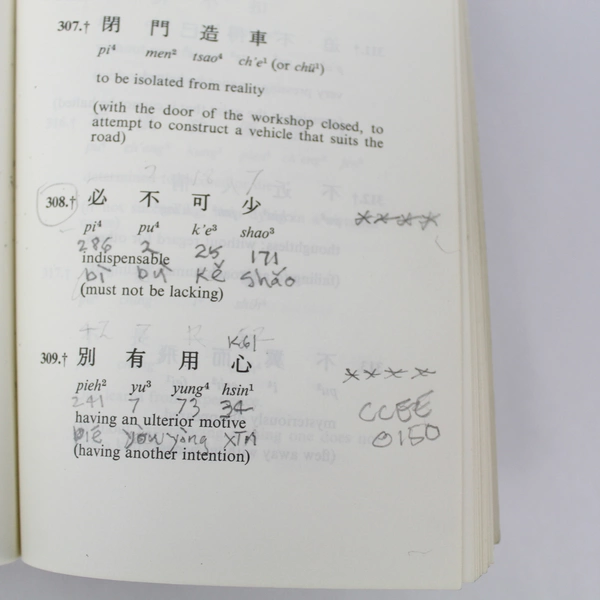 307.† 閉 門 造 車
pi⁴ men² tsao⁴ ch'e¹ (or chü¹)
to be isolated from reality
(with the door of the workshop closed, to
attempt to construct a vehicle that suits the
road)
308.† 必 不 可 少
pi⁴ pu⁴ k'e³ shao³
286 2 25 171
indispensable
bì bù kě shǎo
(must not be lacking)
K61
309.† 別 有 用 心
pieh² yu³ yung⁴ hsin¹
241 7 73 34
having an ulterior motive
bié yǒu yòng xīn
(having another intention)
CCEE
0150